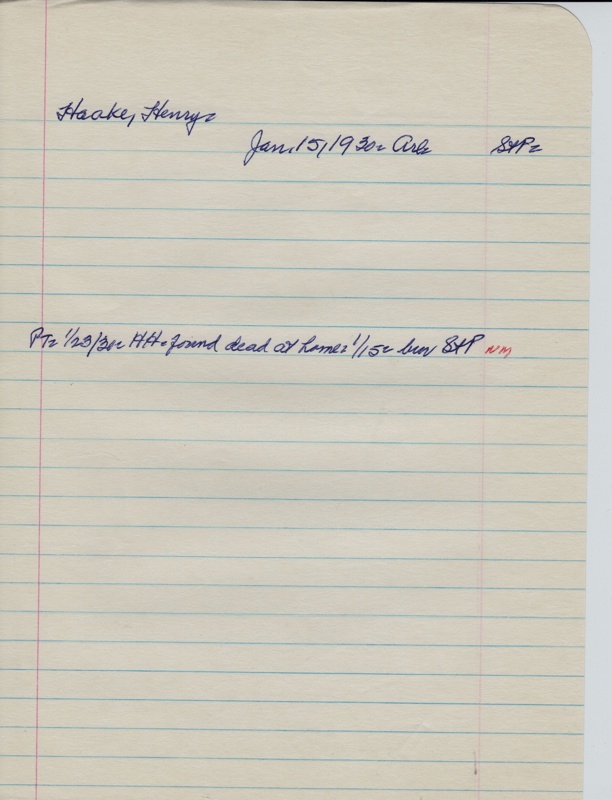 Haake, Henry=
Jan. 15, 1930= Arl= StP=
PT= 1/23/30= HH= found dead at home= 1/15= bur StP NM